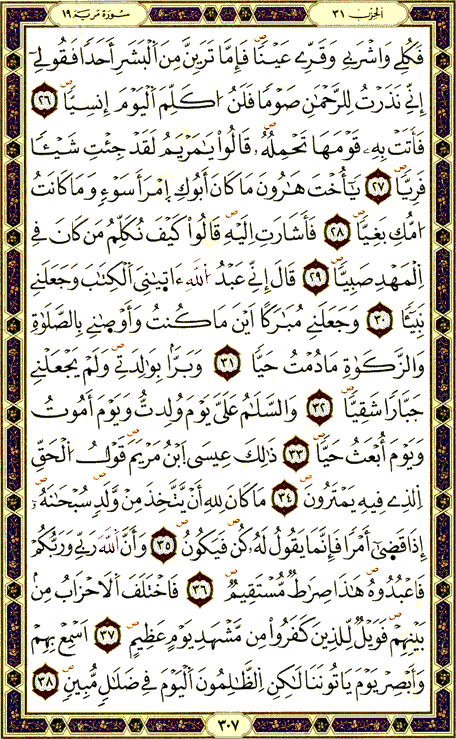 الحزب ٣١
سورة مريم ١٩
فَكُلِے وَاشْرَبِے وَقَرِّے عَيْنًا فَإِمَّا تَرَيِنَّ مِنَ اَلْبَشَرِ أَحَدًا فَقُولِےٓ
إِنِّے نَذَرْتُ لِلرَّحْمَٰنِ صَوْمًا فَلَنُ ا۟كَلِّمَ اَلْيَوْمَ إِنسِيًّا ٢٦
فَأَتَتْ بِهِۦ قَوْمَهَا تَحْمِلُهُۥ قَالُوا۟ يَٰمَرْيَمُ لَقَدْ جِئْتِ شَيْـًٔا
فَرِيًّا ٢٧ يَٰٓأُخْتَ هَٰرُونَ مَا كَانَ أَبُوكِ اِمْرَأَ سَوْءٍ وَمَا كَانَتُ
ا۟مُّكِ بَغِيًّا ٢٨ فَأَشَارَتِ اِلَيْهِ قَالُوا۟ كَيْفَ نُكَلِّمُ مَن كَانَ فِے
اِلْمَهْدِ صَبِيًّا ٢٩ قَالَ إِنِّے عَبْدُ اُللَّهِ ءَاتَيٰنِيَ اَلْكِتَٰبَ وَجَعَلَنِے
نَبِيٓـًٔا ٣٠ وَجَعَلَنِے مُبَٰرَكًا اَيْنَ مَا كُنتُ وَأَوْصَٰنِے بِالصَّلَوٰةِ
وَالزَّكَوٰةِ مَا دُمْتُ حَيًّا ٣١ وَبَرًّۢا بِوَٰلِدَتِے وَلَمْ يَجْعَلْنِے
جَبَّارًا شَقِيًّا ٣٢ وَالسَّلَٰمُ عَلَيَّ يَوْمَ وُلِدتُّ وَيَوْمَ أَمُوتُ
وَيَوْمَ أُبْعَثُ حَيًّا ٣٣ ذَٰلِكَ عِيسَى اَبْنُ مَرْيَمَ قَوْلُ اُلْحَقِّ
اِلذِے فِيهِ يَمْتَرُونَ ٣٤ مَا كَانَ لِلهِ أَنْ يَّتَّخِذَ مِنْ وَّلَدٍ سُبْحَٰنَهُۥٓ
إِذَا قَضَىٰٓ أَمْرًا فَإِنَّمَا يَقُولُ لَهُۥ كُن فَيَكُونُ ٣٥ وَأَنَّ اَللَّهَ رَبِّے وَرَبُّكُمْ
فَاعْبُدُوهُ هَٰذَا صِرَٰطٌ مُّسْتَقِيمٌ ٣٦ فَاخْتَلَفَ اَلَاحْزَابُ مِنۢ
بَيْنِهِمْ فَوَيْلٌ لِّلذِينَ كَفَرُوا۟ مِن مَّشْهَدِ يَوْمٍ عَظِيمٍ ٣٧ اَسْمِعْ بِهِمْ
وَأَبْصِرْ يَوْمَ يَاتُونَنَا لَٰكِنِ اِلظَّٰلِمُونَ اَلْيَوْمَ فِے ضَلَٰلٍ مُّبِينٍ ٣٨
٣٠٧